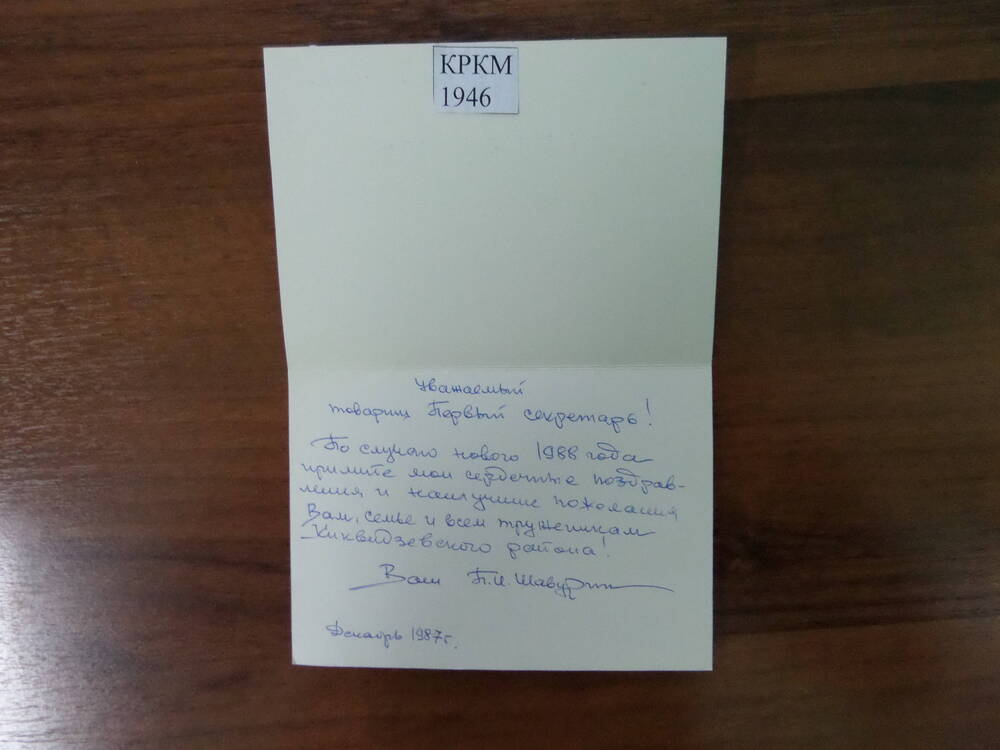 КРКМ
1946
Уважаемый
товарищ Первый секретарь!
По случаю нового 1988 года
примите мои сердечные поздрав-
ления и наилучшие пожелания
Вам, семье и всем труженикам
Киквидзевского района!
Ваш П.И. Шавургин
Декабрь 1987г.